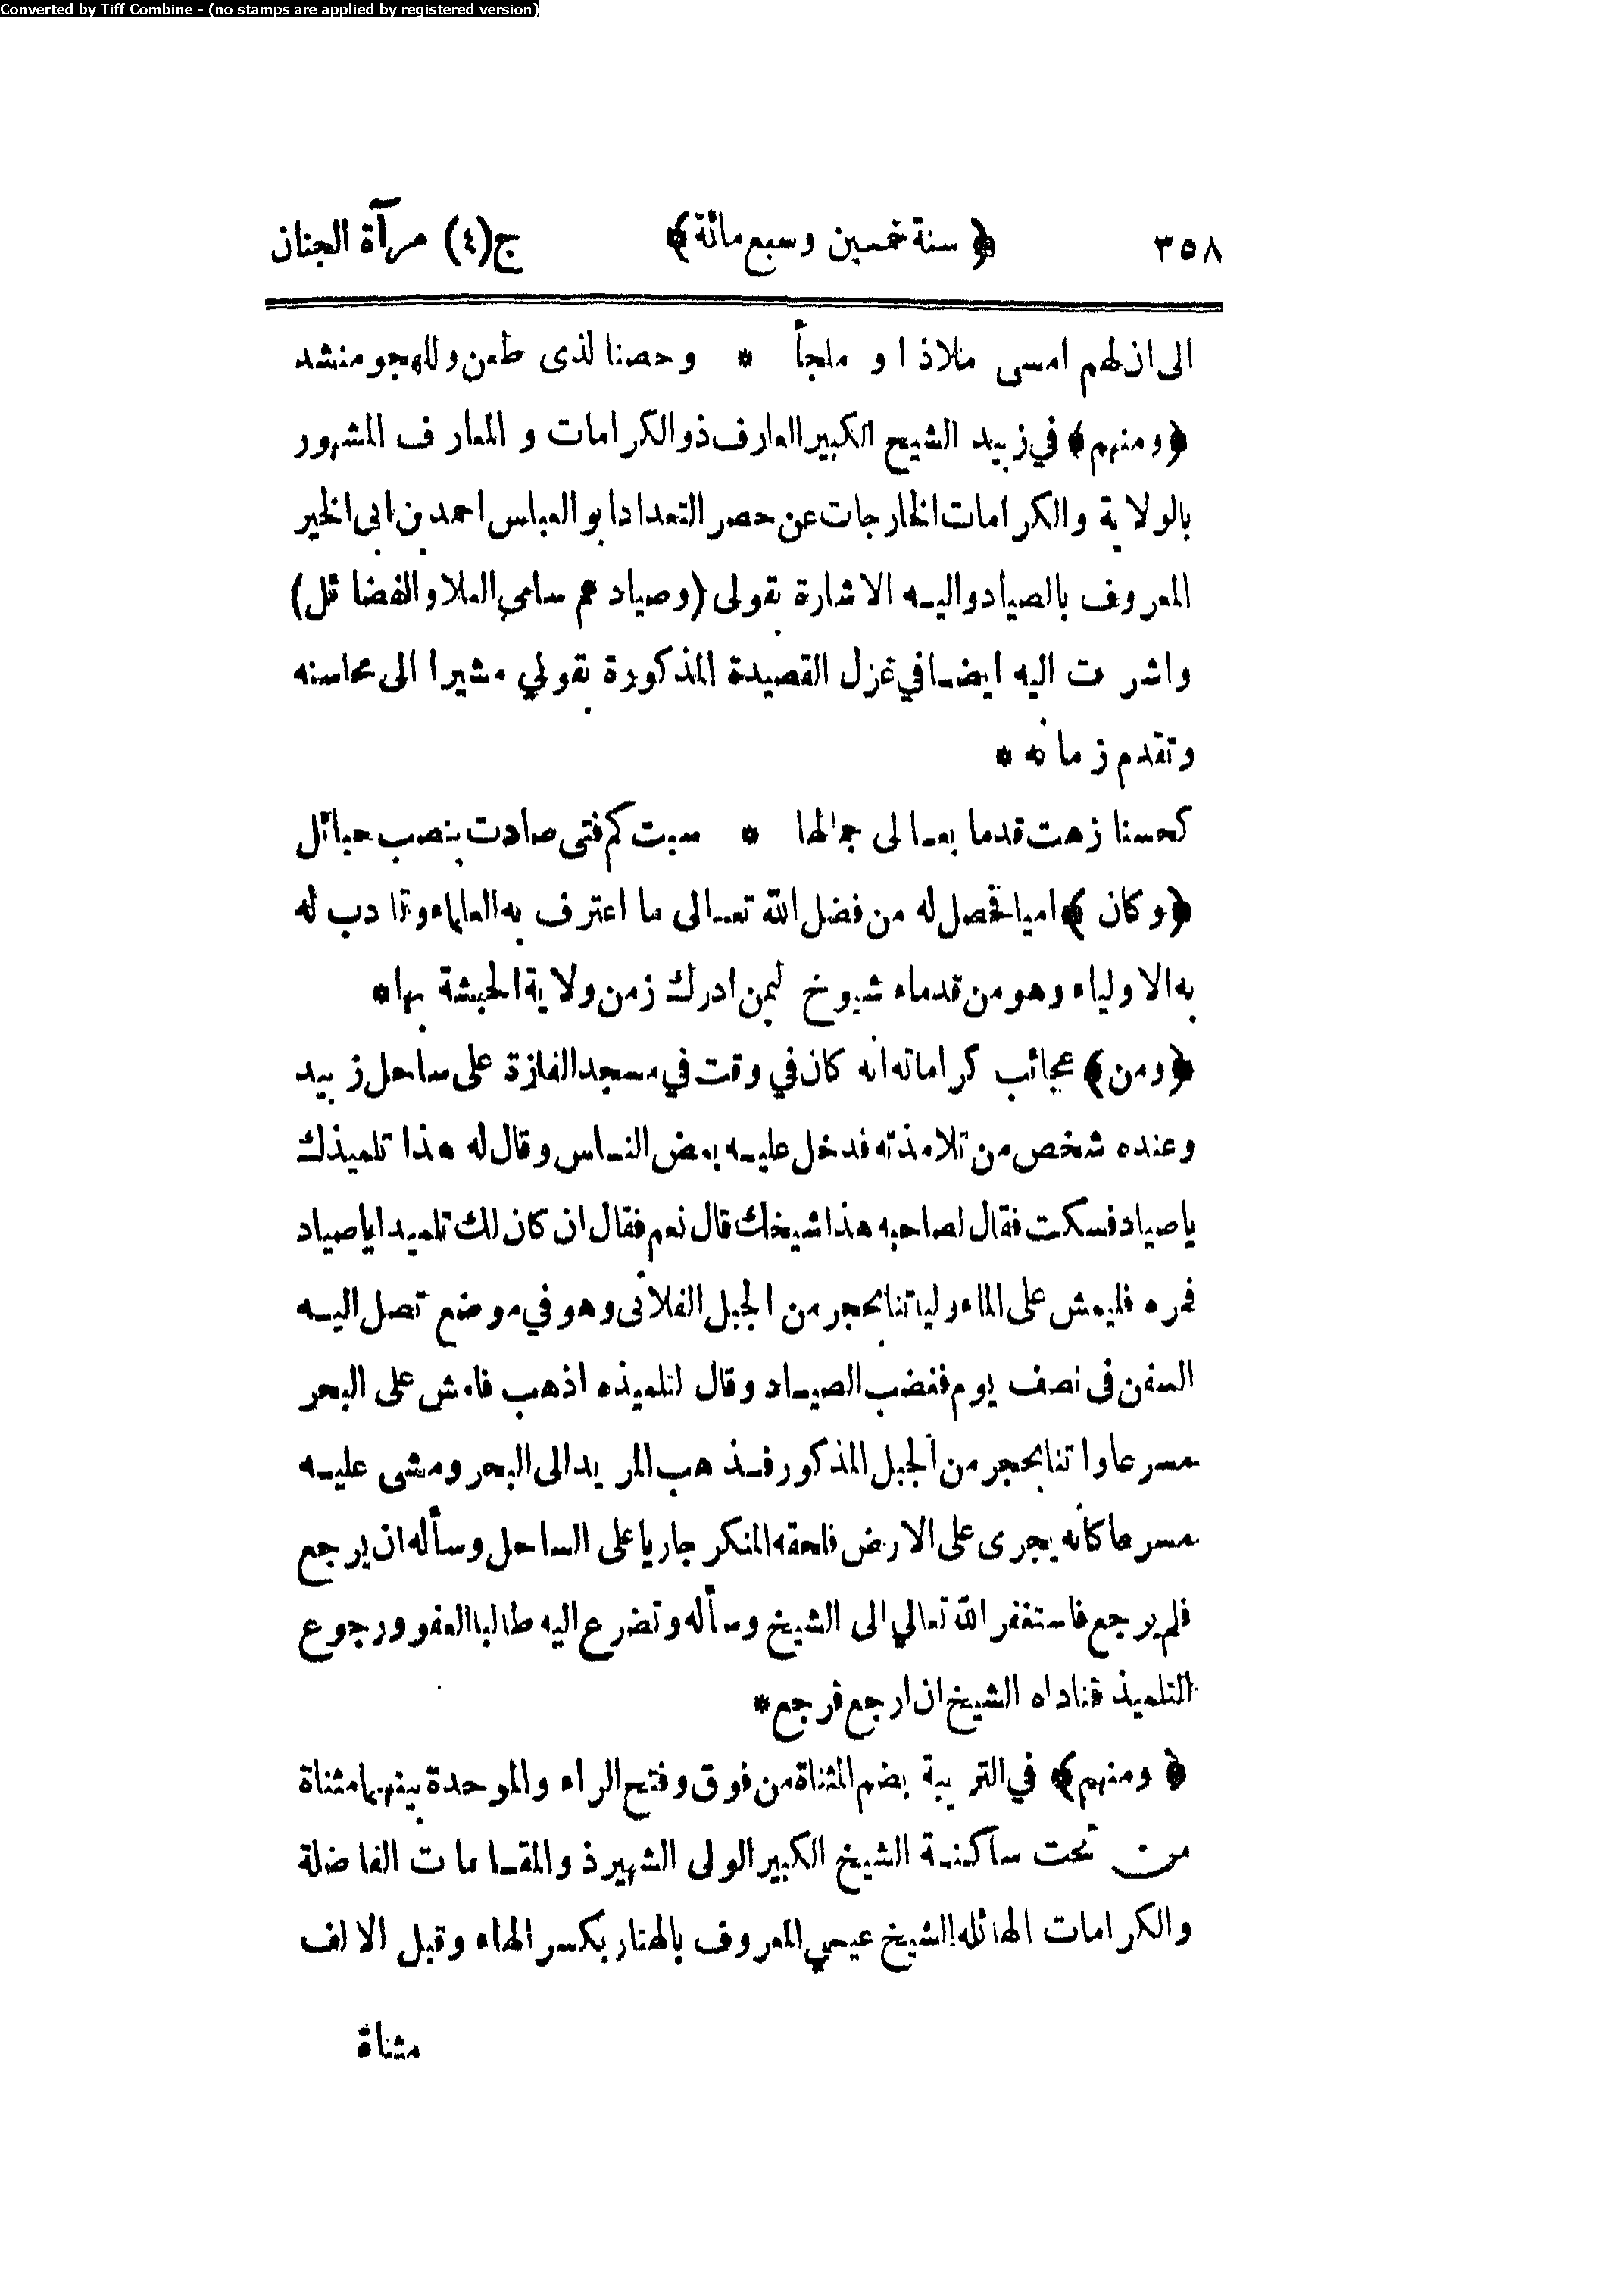 Converted by Tiff Combine - (no stamps are applied by registered version)
٣٥٨ ﴿ سنة خمسين وسبع مائة ﴾ ج(٤) مرآة الجنان
الى ان لهم امسى ملاذا و ملجأ * وحصنا لذى طعن وللهجو منشد
﴿ومنهم﴾ في زبيد الشيخ الكبير العارف ذو الكرامات و المعارف المشهور
بالولاية والكرامات الخارجات عن حصر التعداد ابو العباس احمد بن ابى الخير
المعروف بالصياد واليه الاشارة بقولى (وصياد هم سامى العلا والفضائل)
واشرت اليه ايضا في غزل القصيدة المذكورة بقولي مشيرا الى محاسنه
وتقدم زمانه *
كحسنا زهت قدما بعالى جمالها * سبت كم فتى صادت بنصب حبائل
﴿وكان﴾ اميا فحصل له من فضل الله تعالى ما اعترف به العلماء وتادب له
به الاولياء وهو من قدماء شيوخ ليمن ادرك زمن ولاية الحبشة بها *
﴿ومن﴾ عجائب كراماته انه كان في وقت في مسجد الفازة على ساحل زبيد
وعنده شخص من تلامذته فدخل عليه بعض الناس وقال له هذا تلميذك
ياصياد فسكت فقال لصاحبه هذا شيخك قال نعم فقال ان كان لك تلميدا ياصياد
فمره فليمش على الماء وليا تنا بحجر من الجبل الفلانى وهو في موضع تصل اليه
السفن فى نصف يوم فغضب الصياد وقال لتلميذه اذهب فامش على البحر
مسرعا واتنا بحجر من الجبل المذكور فذهب المريد الى البحر ومشى عليه
مسرعا كأنه يجرى على الارض فلحقه المنكر جاريا على الساحل وسأله ان يرجع
فلم يرجع فاستغفر الله تعالي الى الشيخ وسأله وتضرع اليه طالبا العفو ورجوع
التلميذ فناداه الشيخ ان ارجع فرجع *
﴿ومنهم﴾ في التريبة بضم المثناة من فوق وفتح الراء والموحدة بينهما مثناة
من تحت ساكنة الشيخ الكبير الولى الشهير ذ والمقامات الفاضلة
والكرامات الهائله الشيخ عيسي المعروف بالهتار بكسر الهاء وقبل الالف
مثناة